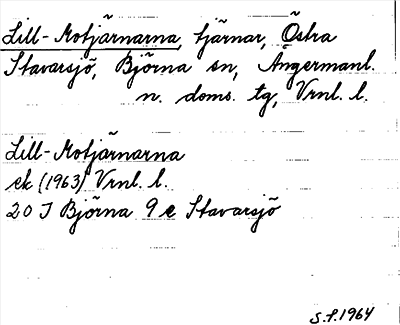 Lill-Rotjärnarna, tjärnar, Östra
Stavarsjö, Björna sn, Ångermanl.
n. doms. tg, Vrnl. l.
Lill-Rotjärnarna
ek (1963) Vrnl. l.
20 J Björna 9 e Stavarsjö
S.P. 1964